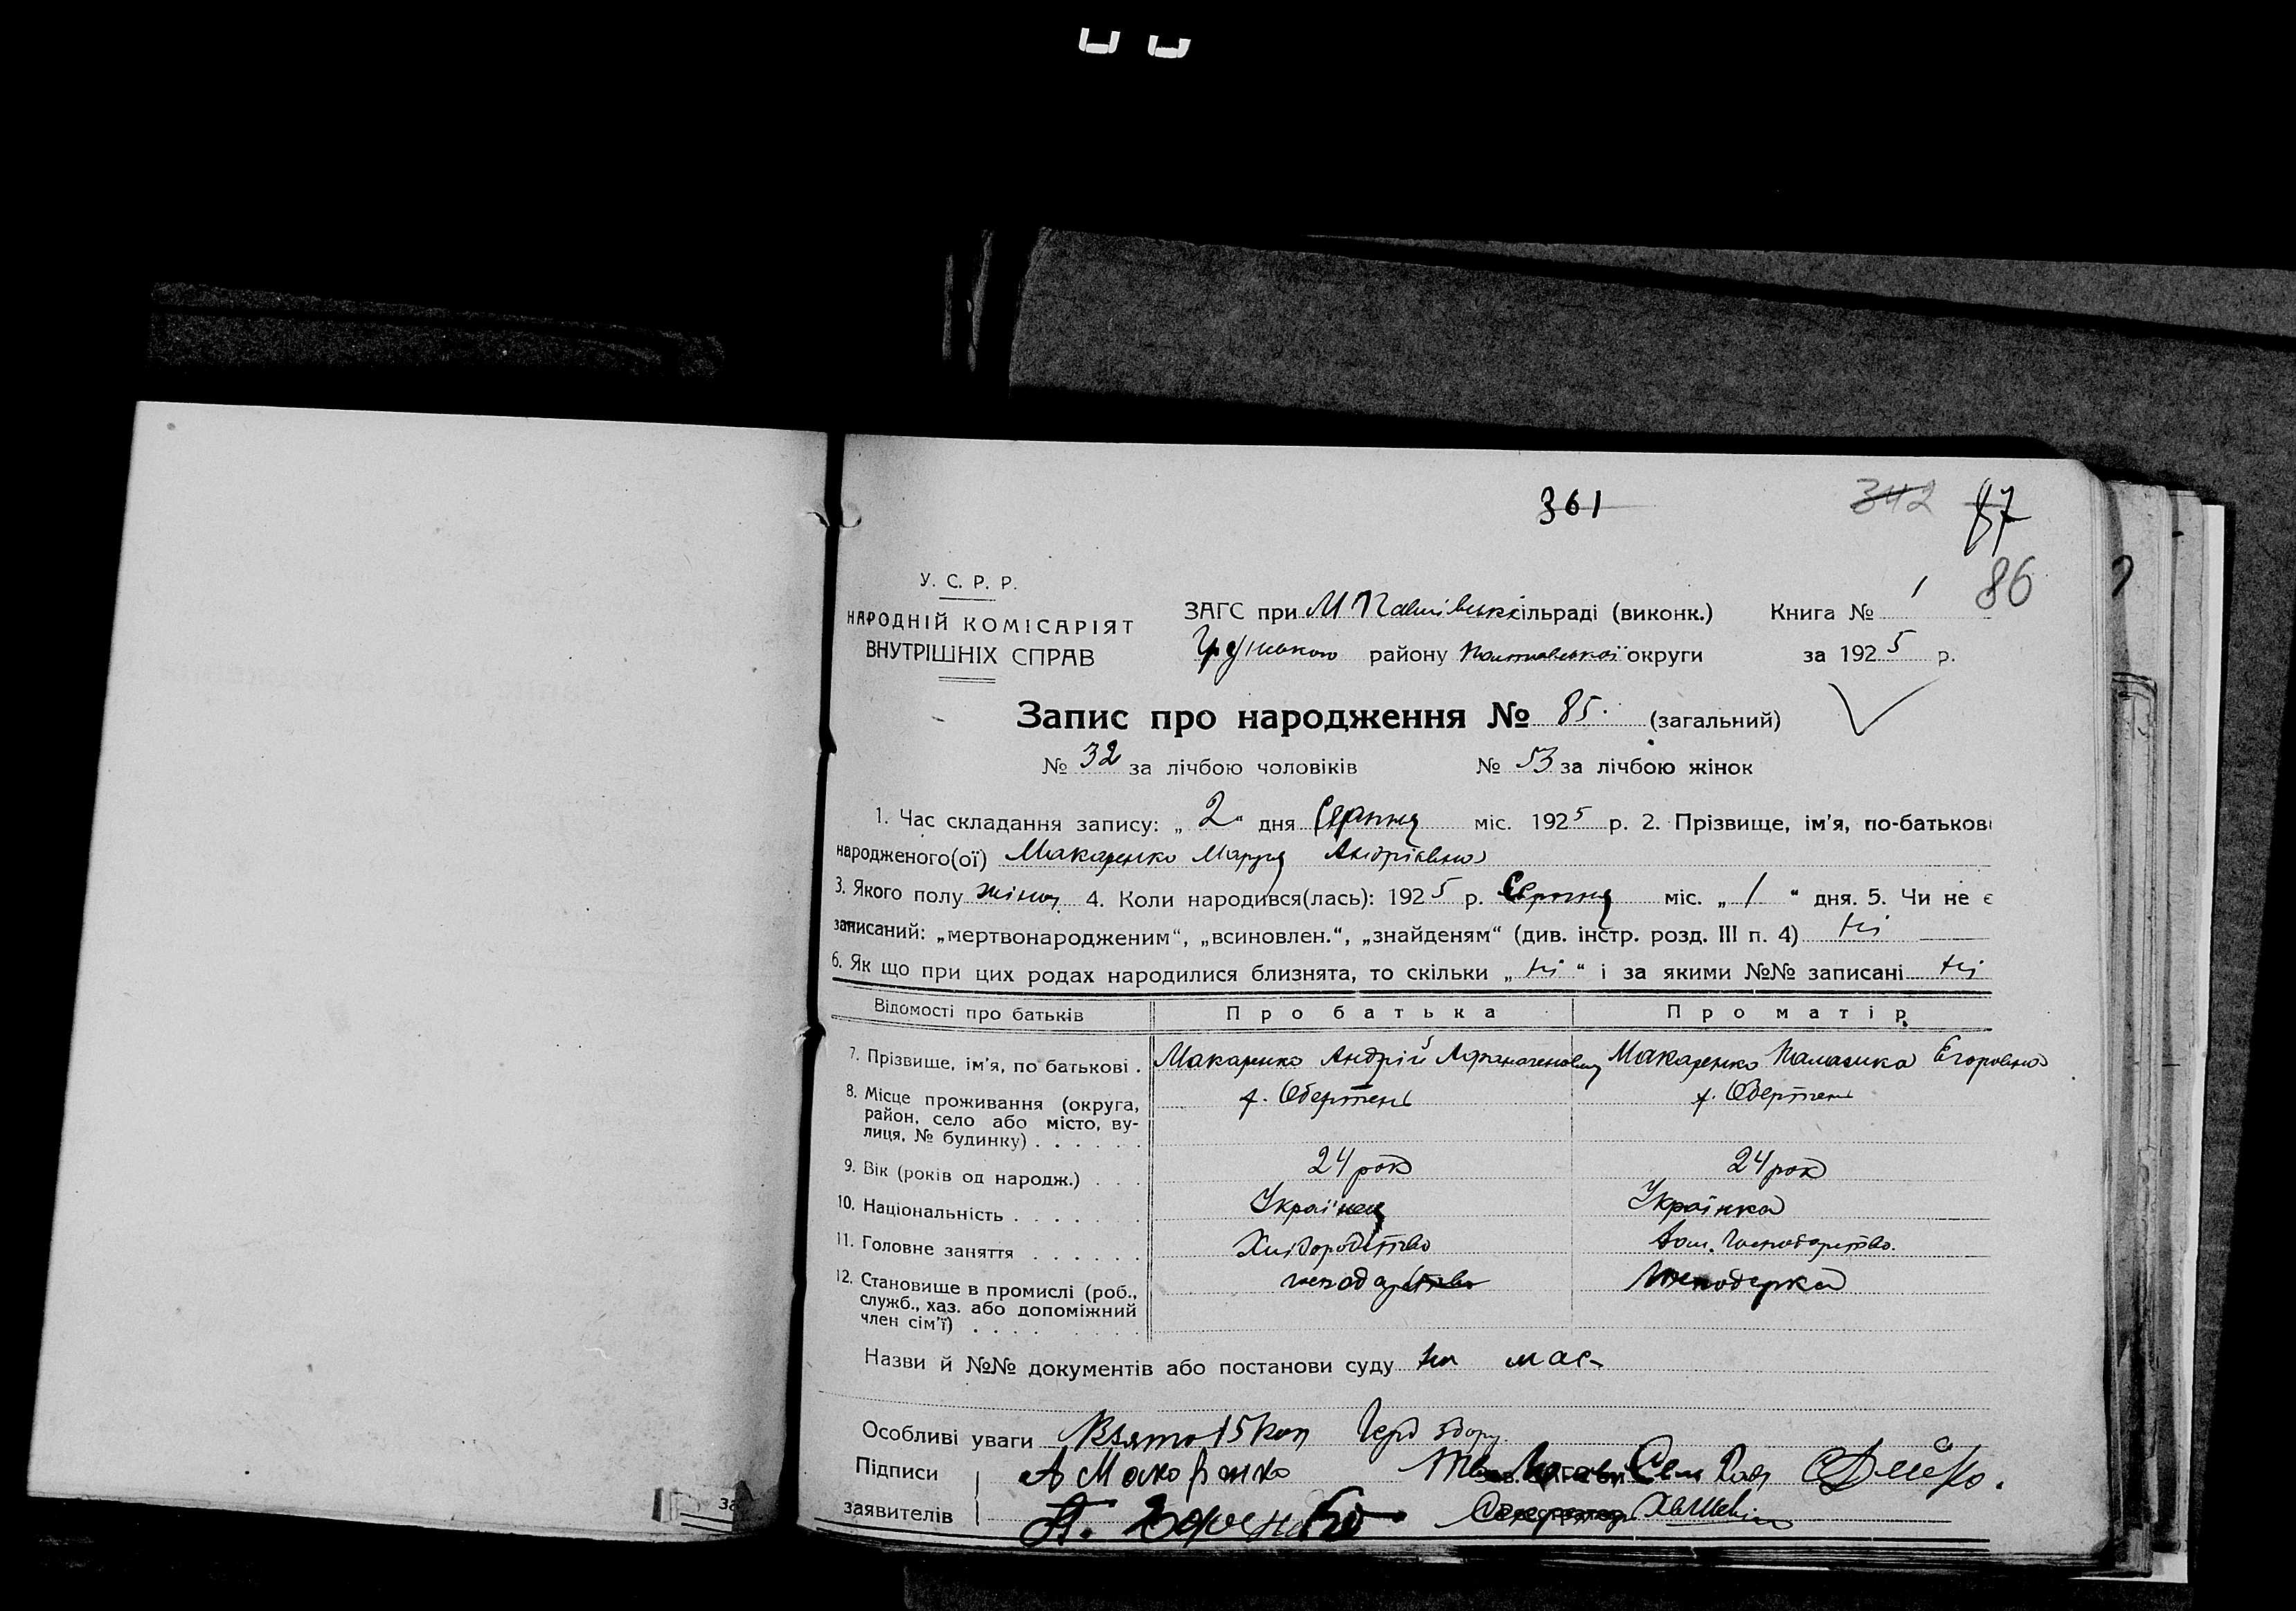 361 342 87
86
У. С. Р. Р.
НАРОДНІЙ КОМІСАРІЯТ
ВНУТРІШНІХ СПРАВ
ЗАГС при М Павлівській сільраді (виконк.) Книга № 1
району Полтавської округи за 1925 р.
Запис про народження № 85. (загальний)
№ 32 за лічбою чоловіків № 53 за лічбою жінок
1. Час складання запису: „2“ дня Серпня міс. 1925 р. 2. Прізвище, ім'я, по-батькові
народженого(ої) Макаренко Маруся Андріївна
3. Якого полу жіноч. 4. Коли народився(лась): 1925 р. Серпня міс. „1“ дня. 5. Чи не є
записаний: „мертвонародженим“, „всиновлен.“, „знайденям“ (див. інстр. розд. III п. 4) ні
6. Як що при цих родах народилися близнята, то скільки „ні“ і за якими №№ записані ні
Відомості про батьків Про батька Про матір
7. Прізвище, ім'я, по батькові . Макаренко Андрій Макаренко Палажка Єгоровна
8. Місце проживання (округа, район, село або місто, вулиця, № будинку) . . . . . . х. Обертень х. Обертень
9. Вік (років од народж.) . . . 24 рок 24 рок
10. Національність . . . . . . . Українец Українка
11. Головне заняття . . . . . . Хліборобство дом. господарство.
12. Становище в промислі (роб., служб., хаз. або допоміжний член сім'ї) . . . . . . . . господарство господарка
Назви й №№ документів або постанови суду не має
Особливі уваги Взято 15 коп
Підписи А Макаренко
заявителів Секретар
за